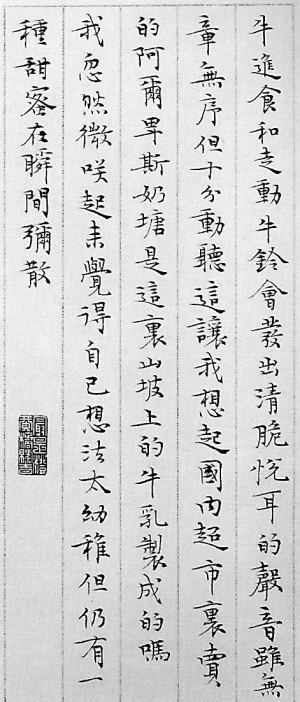 牛進食和走動牛鈴會發出清脆悅耳的聲音雖無
章無序但十分動聽這讓我想起國內超市裏賣
的阿爾卑斯奶塘是這裏山坡上的牛乳製成的嗎
我忽然微咲起来覺得自己想法太幼稚但仍有一
種甜蜜在瞬間彌散